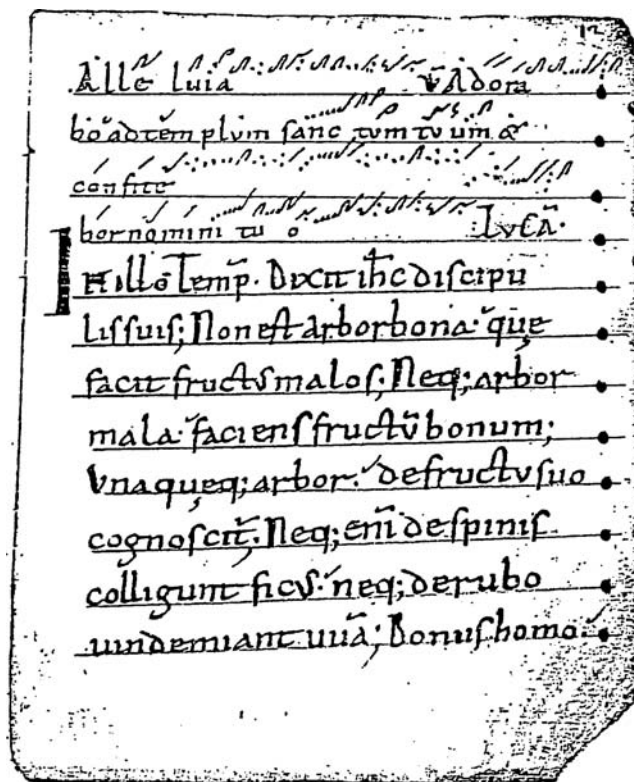 Alle luia ℣ Adora
bo ad tem plum sanc tum tu um &
confite
bor nomini tu o LVCA̅.
IN illo Temp̅. Dixit ih̅c discipu
lis suis; Non est arbor bona. que
facit fructus malos; Neq; arbor
mala. faciens fructu̅ bonum;
Vna queq; arbor. de fructu suo
cognoscit̅. Neq; eni̅ de spinis
colligunt ficus. neq; de rubo
uindemiant uua̅; Bonus homo